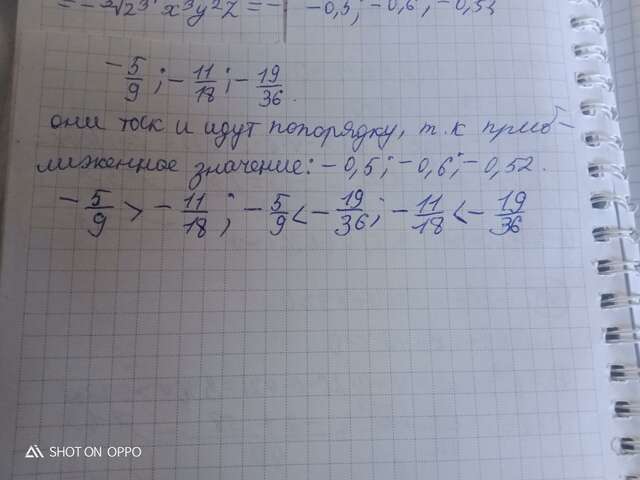 -0,5; -0,6; -0,53
-5/9; -11/18; -19/36.
они так и идут попорядку, т.к приб-
лиженное значение: -0,5; -0,6; -0,52.
-5/9 > -11/18; -5/9 < -19/36; -11/18 < -19/36
SHOT ON OPPO